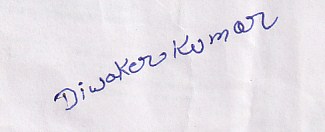 Diwaker Kumar